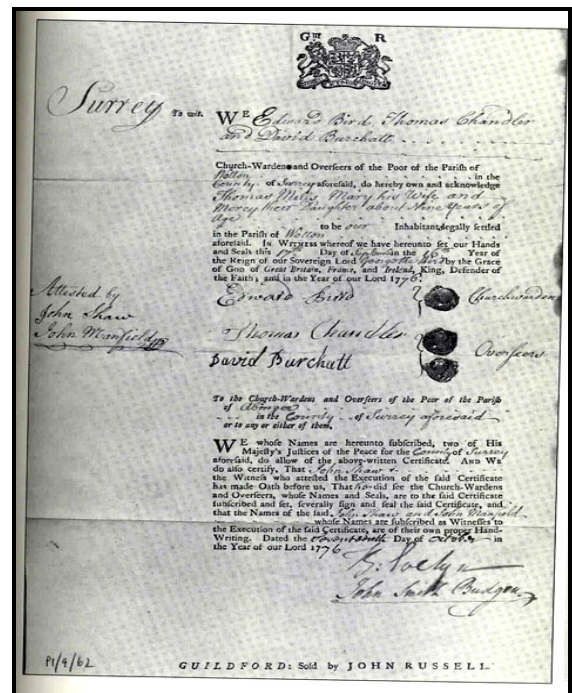 G III R
Surrey To wit.
WE Edward Bird, Thomas Chandler
and David Burchatt
Church-Wardens and Overseers of the Poor of the Parish of
Wotton in the
County of Surrey aforesaid, do hereby own and acknowledge
Thomas Mills, Mary his Wife and
Mercy their Daughter about Nine Years of
Age
to be our Inhabitants legally settled
in the Parish of Wotton
aforesaid. In WITNESS whereof we have hereunto set our Hands
and Seals this 17th Day of September in the 16th Year of
the Reign of our Sovereign Lord George the Third by the Grace
of GOD of Great Britain, France, and Ireland, King, Defender of
the Faith; and in the Year of our Lord 1776.
Attested by
John Shaw
John Manfield
Edward Bird Churchwarden
Thomas Chandler
David Burchatt
Overseers
To the Church-Wardens and Overseers of the Poor of the Parish
of Abinger
in the County of Surrey aforesaid
or to any or either of them.
WE whose Names are hereunto subscribed, two of His
Majesty's Justices of the Peace for the County of Surrey
aforesaid, do allow of the above-written Certificate. AND WE
do also certify, That John Shaw
the Witness who attested the Execution of the said Certificate
has made Oath before us, That he did see the Church-Wardens
and Overseers, whose Names and Seals, are to the said Certificate
subscribed and set, severally sign and seal the said Certificate, and
that the Names of the said John Shaw and John Manfield
whose Names are subscribed as Witnesses to
the Execution of the said Certificate, are of their own proper Hand-
Writing. Dated the Seventeenth Day of October in
the Year of our Lord 1776
G: Evelyn
John Smith Budgen
P1/9/62
GUILDFORD: Sold by JOHN RUSSELL